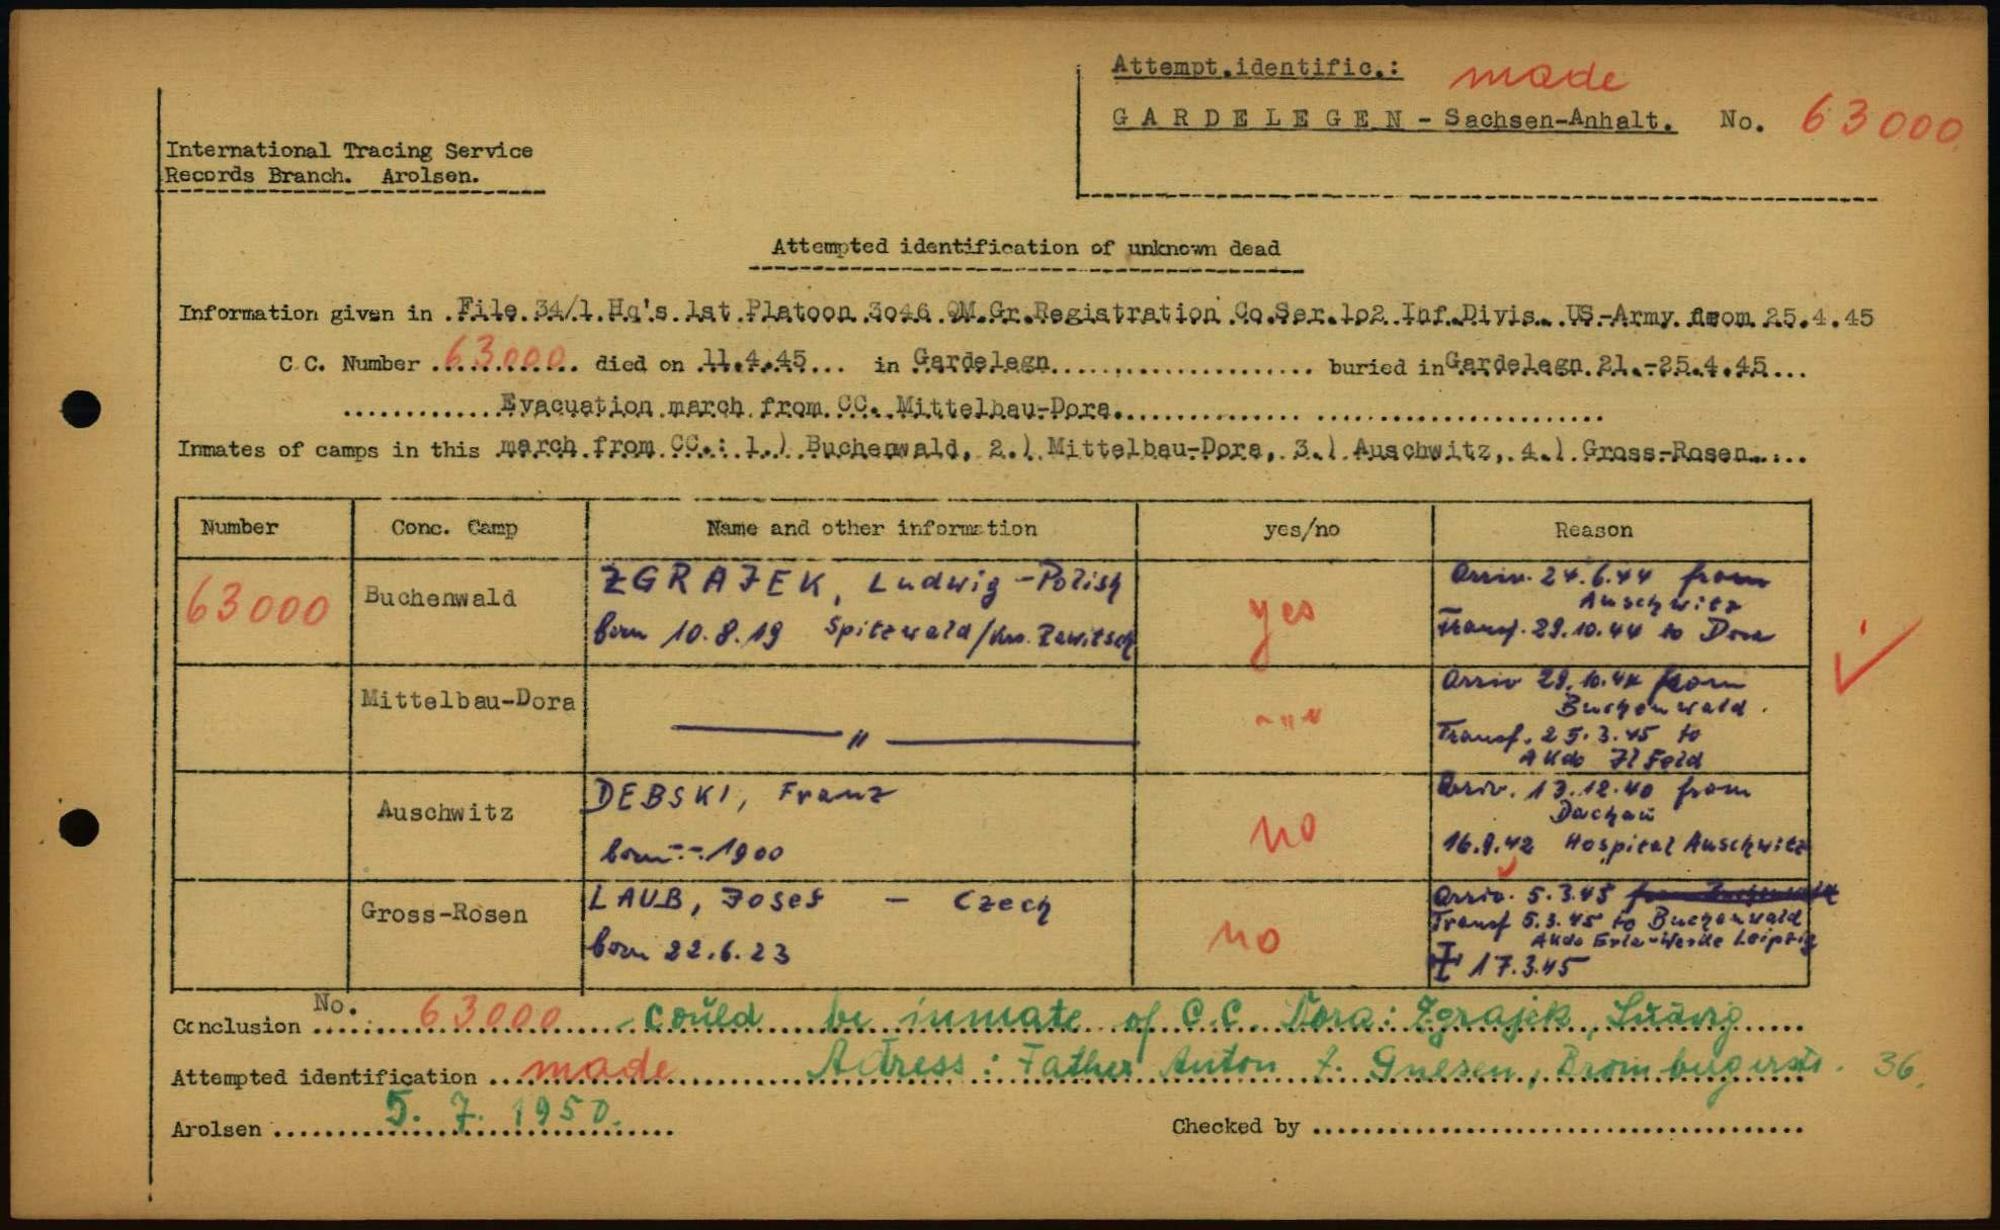 Attempt.identific.: made
GARDELEGEN - Sachsen-Anhalt. No. 63000
International Tracing Service
Records Branch. Arolsen.
Attempted identification of unknown dead
Information given in File 34/1 Hq's 1st Platoon 3o46 QM.Gr.Registration Co.Ser.1o2 Inf.Divis. US-Army from 25.4.45
C.C. Number 63000 died on 11.4.45 in Gardelegn buried in Gardelegn 21.-25.4.45
Evacuation march from CC. Mittelbau-Dora
Inmates of camps in this march from CC.: 1.) Buchenwald, 2.) Mittelbau-Dora, 3.) Auschwitz, 4.) Gross-Rosen
Number Conc. Camp Name and other information yes/no Reason
63000 Buchenwald ZGRAJEK, Ludwig - Polish yes Arriv. 24.6.44 from
Auschwitz
born 10.8.19 Spitzwald/Krs. Zawitsch Transf. 29.10.44 to Dora
Mittelbau-Dora — " — - " " Arriv 29.10.44 from
Buchenwald.
Transf. 25.3.45 to
AKdo Ilfeld
Auschwitz DEBSKI, Franz no Arriv. 13.12.40 from
Dachau
born -.-.1900 16.9.42 Hospital Auschwitz
Gross-Rosen LAUB, Josef - Czech no Arriv. 5.3.45
Transf 5.3.45 to Buchenwald
AKdo Erla-Werke Leipzig
born 22.6.23 17.3.45
Conclusion No. 63000 could be inmate of C.C. Dora: Zgrajek, Ludwig
Attempted identification made Adress: Father Anton Z. Gnesen, Brombergerstr. 36.
Arolsen 5. 7. 1950. Checked by